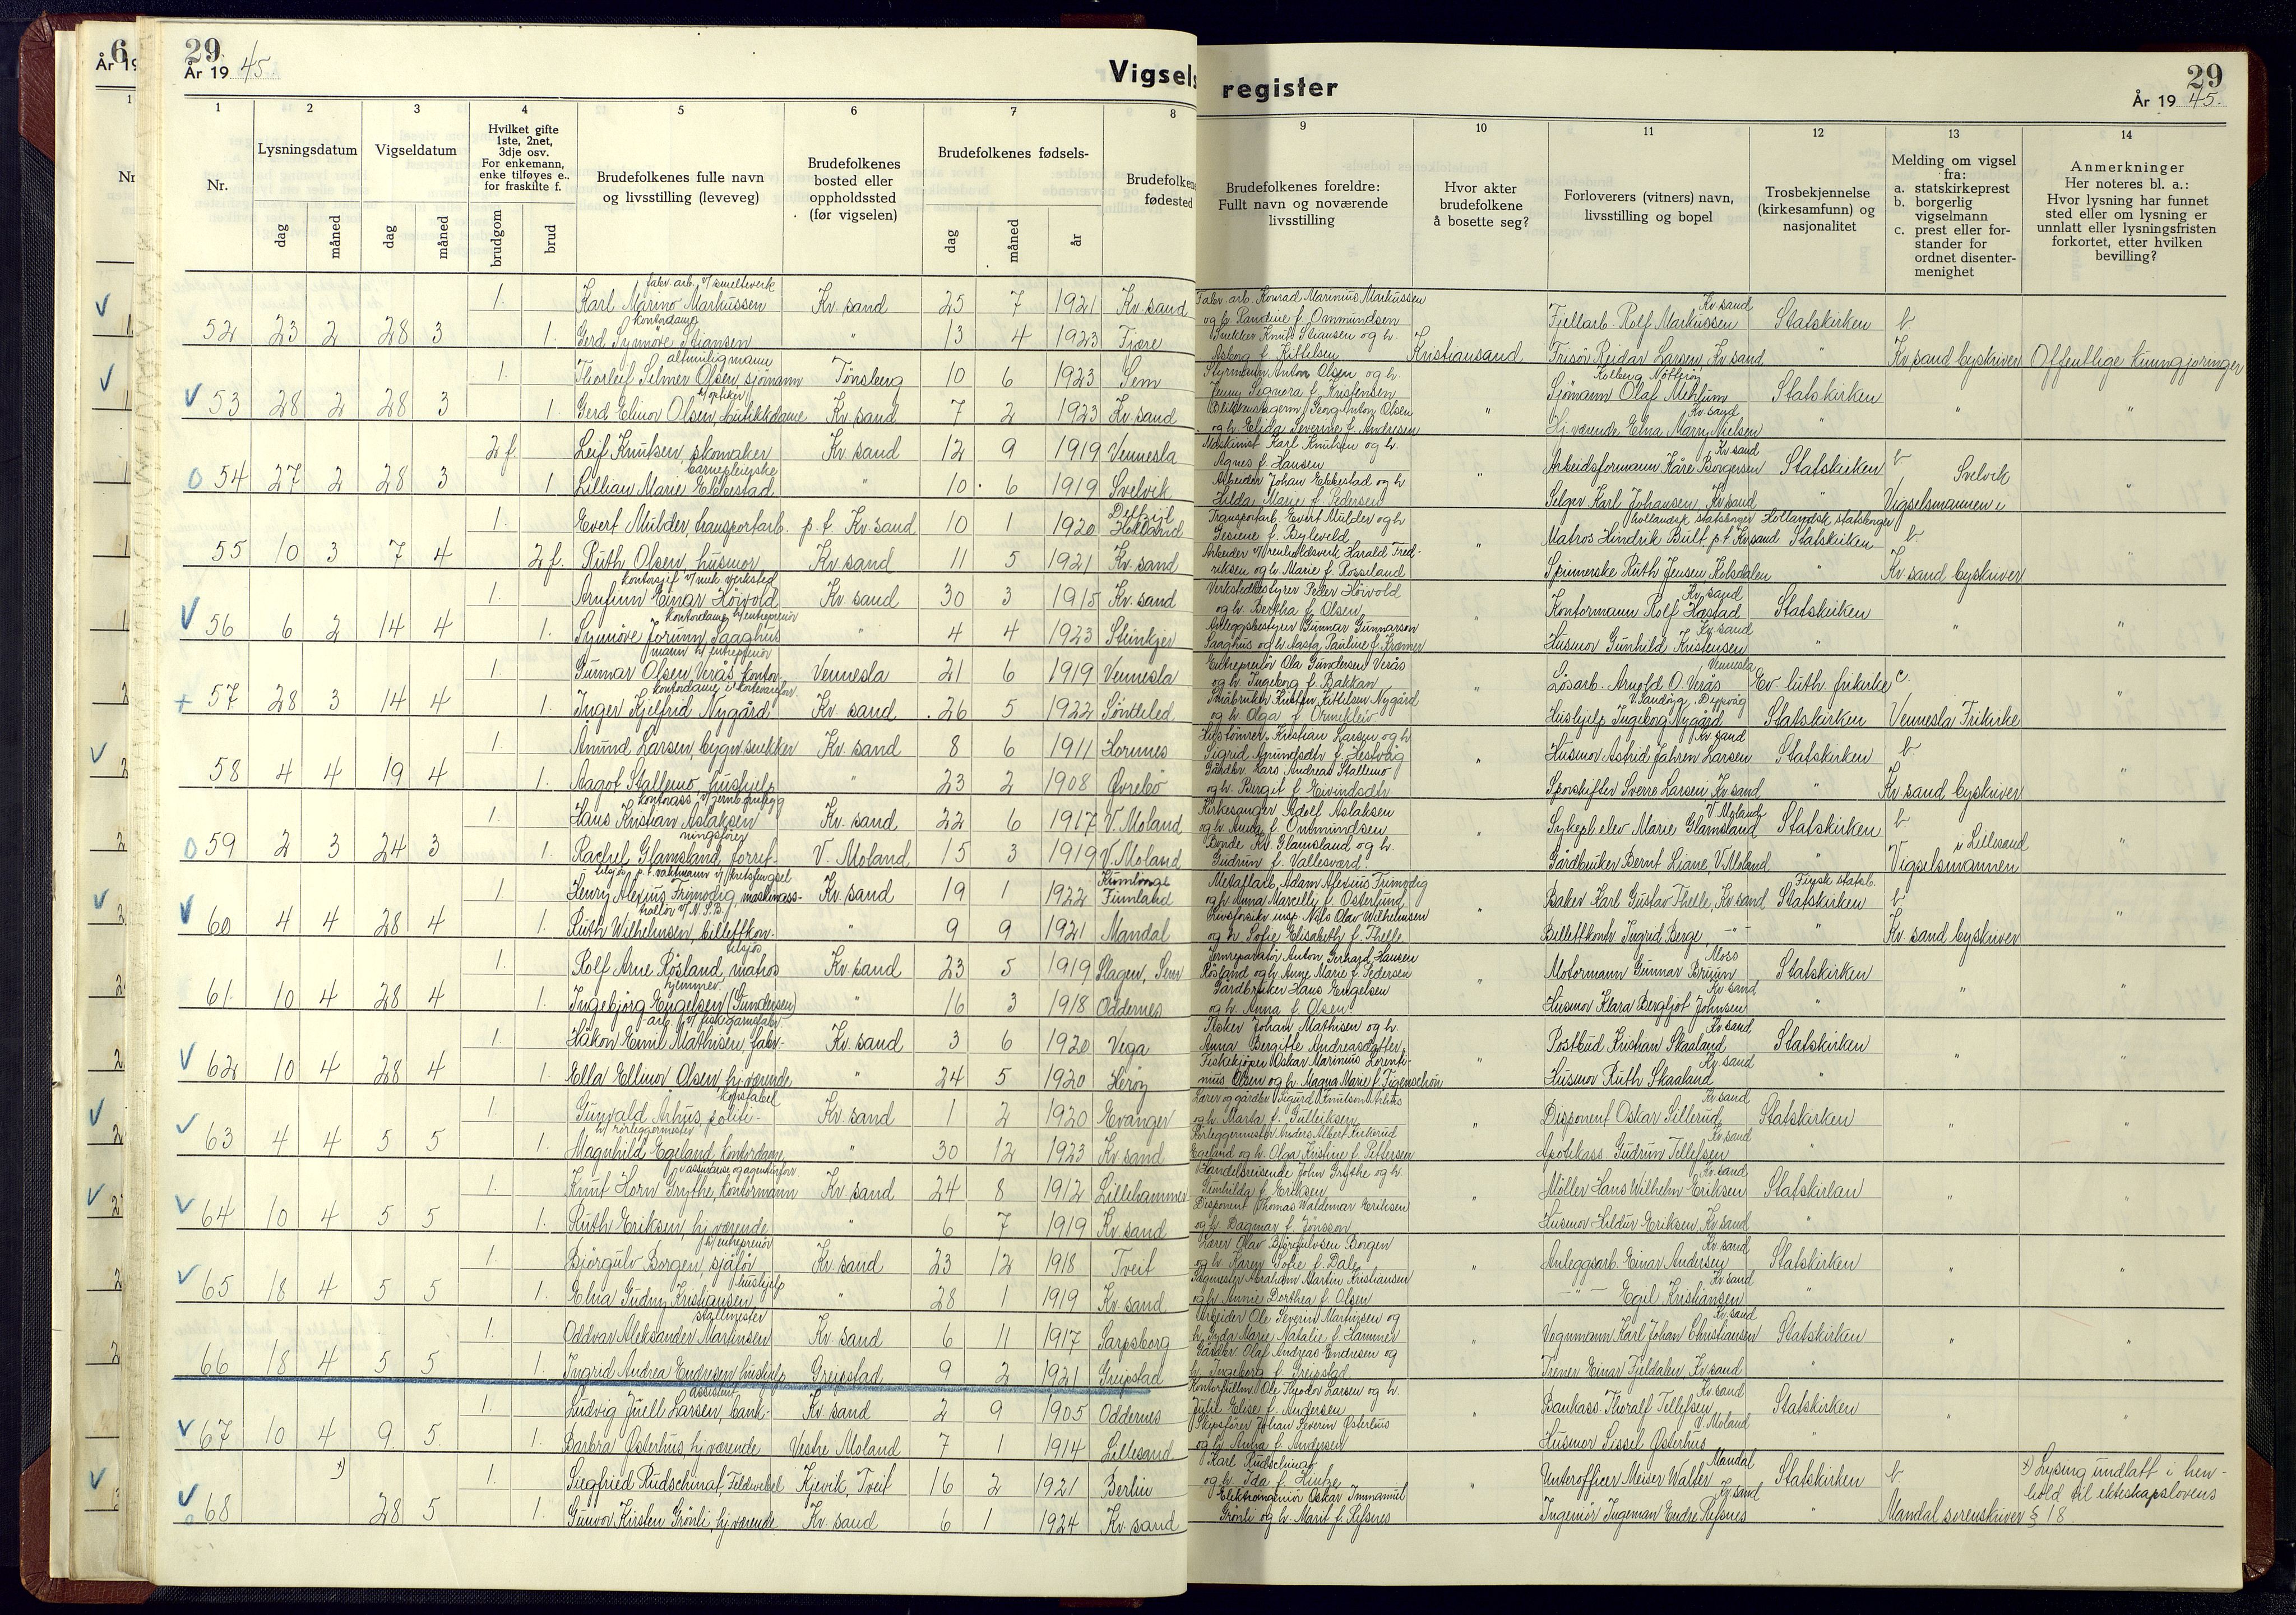 29
År 19 45
Vigsels register
29
År 19 45.
1 2 3 4 5 6 7 8 9 10 11 12 13 14
Nr.
Lysningsdatum
dag måned
Vigseldatum
dag måned
Hvilket gifte
1ste, 2net,
3dje osv.
For enkemann,
enke tilføyes e..
for fraskilte f.
brudgom brud
Brudefolkenes fulle navn
og livsstilling (leveveg)
Brudefolkenes
bosted eller
oppholdssted
(før vigselen)
Brudefolkenes fødsels-
dag måned år
Brudefolkenes
fødested
Brudefolkenes foreldre:
Fullt navn og noværende
livsstilling
Hvor akter
brudefolkene
å bosette seg?
Forloverers (vitners) navn,
livsstilling og bopel
Trosbekjennelse
(kirkesamfunn) og
nasjonalitet
Melding om vigsel
fra:
a. statskirkeprest
b. borgerlig
vigselmann
c. prest eller for-
stander for
ordnet disenter-
menighet
Anmerkninger
Her noteres bl. a.:
Hvor lysning har funnet
sted eller om lysning er
unnlatt eller lysningsfristen
forkortet, etter hvilken
bevilling?
1. Karl Marino Markussen fabr. arb. v/ smelteverk Kv. sand 25 7 1921 Kv. sand Fabr. arb. Konrad Marinius Markussen og h. Randine f. Ommundsen Fjellarb. Rolf Markussen Kv. sand Statskirken b
52 23 2 28 3 1. Gerd Synnøve Stiansen kontordame " 13 4 1923 Fjære Snekker Knut Stiansen og h. Asborg f. Kittelsen Kristiansand Frisør Reidar Larsen, Kv. sand " Kv. sand byskriver Offentlige kunngjøringer
1. Thorleif Selmer Olsen, sjömann altmuligmann Tønsberg 10 6 1923 Sem Styrmann Anton Olsen og h. Jenny Signora f. Kristensen Sjömann Olaf Mehlum Kolberg Nötterøy Statskirken
53 28 2 28 3 1 Gerd Elinor Olsen, butikkdame h/ optiker Kv. sand 7 2 1923 Kv. sand Georg Anton Olsen og h. Elida Severine f. Andresen " Hj. værende Elna Marry Nielsen Kv. sand " " "
2 f. Leif Knutsen, skomaker Kv. sand 12 9 1919 Vennesla Maskinist Karl Knutsen og h. Agnes f. Hansen Arbeidsformann Kåre Borgersen Kv. sand Statskirken b
54 27 2 28 3 1 Lillian Marie Ekkestad barnepleierske " 10. 6 1919 Svelvik Arbeider Johan Ekkestad og h. Hilda Marie f. Pedersen " Selger Karl Johansen, Kv. sand " Vigselsmannen i Svelvik "
1. Evert Mulder, transportarb. p. t. Kv. sand 10 1 1920 Holland Transportarb. Evert Mulder og h. Gesiene f. Byleveld Matros Hindrik Bult p. t. Kv. sand hollandsk statsborger Statskirken Hollandsk statsborger b
55 10 3 7 4 2 f. Ruth Olsen, husmor Kv. sand 11 5 1921 Kv. sand Arbeider v/ renholdsverk Harald Fredriksen og h. Marie f. Rosseland " Spinnerske Ruth Jensen Kolsdalen " Kv. sand byskriver "
1. Arnfinn Einar Höivold kontorsjef v/ mek verksted Kv. sand 30 3 1915 Kv. sand Verkstedbestyrer Peder Höivold og h. Bertha f. Olsen Kontormann Rolf Hastad Kv. sand Statskirken
56 6 2 14 4 1. Synnöve Jorunn Saaghus kontordame h/ entreprenör " 4 4 1923 Steinkjer Anleggsbestyrer Gunnar Gunnarson Saaghus og h. Aasta Pauline f. Kræmer Husmor Gunhild Kristensen Kv. sand " " "
1. Gunnar Olsen Verås kontormann h/ entreprenör Vennesla 21 6 1919 Vennesla Entreprenör Ola Gundersen Verås og h. Ingeborg f. Bakkan Løsarb. Arnold O. Verås Vennesla Ev. luth. frikirke c.
57 28 3 14 4 1. Inger Kjelfrid Nygård kontordame Kv. sand 26 5 1922 Söndeled Småbruker Kristen Kittelsen Nygård og h. Olga f. Ormekleiv " Hushjelp Ingeborg Nygård V. Sandöy, Dypvåg Statskirken Vennesla Frikirke "
1. Amund Larsen, bygn. snekker Kv. sand 8 6 1911 Hornnes Hustömrer Kristian Larsen og h. Sigrid Amundsdtr. f. Hestvåg Husmor Astrid Jahren Larsen Kv. sand Statskirken b
58 4 4 19 4 1. Aagot Stallemo hushjelp " 23 2 1908 Øvrebö Gårdbr. Lars Andreas Stallemo og h. Bergit f. Eivindsdtr. " Sporskifter Sverre Larsen, Kv. sand " Kv. sand byskriver "
1. Hans Kristian Aslaksen kontorass. v/ jernb.anlegg Kv. sand 22 6 1917 V. Moland Kirkesanger Adolf Aslaksen og h. Anna f. Ommundsen Sykepl. elev Marie Glamsland V. Moland Statskirken b
59 2 3 24 3 1. Rachel Glamsland, forretningsförer V. Moland 15 3 1919 V. Moland Bonde Kr. Glamsland og h. Gudrun f. Vallesværd " Gårdbruker Bernt Liane, V. Moland " Vigselsmannen i Lillesand "
1 Henry Alexius Frimodig maskinass. p. t. vaktmann v/ kretsfengsel Kv. sand 19 1 1922 Finnland Metallarb. Adam Alexius Frimodig og h. Anna Marcelly f. Österlund Baker Karl Gustav Thelle, Kv. sand Statskirken Finsk statsb. b
60 4 4 28 4 1. Ruth Wilhelmsen, billettkontrollör v/ N. S. B. " 9 9 1921 Mandal Livsforsikr. insp. Nils Olav Wilhelmsen og h. Sofie Elisabeth f. Thelle " Billettkontr. Ingrid Berge, -"- " Kv. sand byskriver
1. Rolf Arne Røsland, matros tilsjøs Kv. sand 23 5 1919 Slagen, Sem Anton Gerhard Hansen Røsland og h. Anne Marie f. Pedersen Motormann Gunnar Bruun Moss Statskirken
61. 10 4 28 4 1. Ingebjörg Engelsen (Gundersen) hjemmev. " 16 3 1918 Oddernes Gårdbruker Hans Engelsen og h. Anna f. Olsen Husmor Klara Bergljot Johnsen Kv. sand " " "
1. Håkon Emil Mathisen, fabr. arb. v/ fiskegarnsfabr. Kv. sand 3 6 1920 Vega Fisker Johan Mathisen og h. Anna Bergitte Andreasdatter Postbud Kristian Skaaland Kv. sand Statskirken
62 10 4 28 4 1. Ella Ellinor Olsen, hj. værende " 24 5 1920 Heröy Fiskekjöper Oskar Marinius Lorentinius Olsen og h. Magna Marie f. Figenschou " Husmor Ruth Skaaland Kv. sand " " "
1. Gunvald Århus, politikonstabel Kv. sand 1 2 1920 Evanger Lærer og gårdbr. Sigurd Knutson Århus og h. Marta f. Gulleiksen Disponent Oskar Sillerud Kv. sand Statskirken
63 4 4 5 5 1. Magnhild Egeland, kontordame h/ rörleggermester " 30 12 1923 Kv. sand Rörleggermester Anders Albert Egeland og h. Olga Kristine f. Pettersen " Apotekass. Gudrun Tellefsen Kv. sand " " "
1. Knut Horn Grythe, kontormann v/ assuranse og agenturforr. Kv. sand 24 8 1912 Lillehammer Handelsreisende John Grythe og h. Gunhilda f. Eriksen Möller Hans Wilhelm Eriksen Kv. sand Statskirken
64 10 4 5 5 1. Ruth Eriksen, hj. værende " 6 7 1919 Kv. sand Disponent Thomas Waldemar Eriksen og h. Dagmar f. Jönsson " Husmor Hildur Eriksen, Kv. sand " " "
1. Björgulv Borgen, sjåför h/ entreprenör Kv. sand 23 12 1918 Tveit Lærer Olav Björgulvsen Borgen og h. Karen Sofie f. Dale Anleggsarb. Einar Andersen Kv. sand Statskirken
65 18 4 5 5 1. Elna Gudny Kristiansen hushjelp " 28 1 1919 Kv. sand Sagmester Abraham Martin Kristiansen og h. Annie Dorthea f. Olsen " -"- Egil Kristiansen Kv. sand " " "
1. Oddvar Aleksander Martinsen stallmester Kv. sand 6 11 1917 Sarpsborg Arbeider Ole Severin Martinsen og h. Gyda Marie Natalie f. Hammer Vognmann Karl Johan Christiansen Kv. sand Statskirken
66 18 4 5 5 1. Ingrid Andrea Endresen, hushjelp Greipstad 9 2 1921 Greipstad Gårdbr. Olaf Andreas Endresen og h. Ingeborg f. Greipstad " Trener Einar Fjeldalen Kv. sand " " "
1. Ludvig Juell Larsen, bankassistent Kv. sand 2 9 1905 Oddernes Kontorfullm. Ole Theodor Larsen og h. Julil Elise f. Andersen Bankass. Thoralf Tellefsen Kv. sand Statskirken
67 10 4 9 5 1. Barbra Østerhus, hj. værende Vestre Moland 7 1 1914 Lillesand Skipsförer Johan Severin Østerhus og h. Anna f. Andersen " Husmor Sissel Østerhus V. Moland " " "
x) 1. Siegfried Rudschinat Feldwebel Kjevik, Tveit 16 2 1921 Berlin Karl Rudschinat og h. Ida f. Hintze Unterofficer Meiser Walter Mandal Statskirken b. x) Lysing undlatt i hen-
68 28 5 1. Gunvor Kirsten Grönli, hj. værende Kv. sand 6 1 1924 Kv. sand Elektroingeniör Oskar Immanuel Grönli og h. Marit f. Refsnes " Ingeniör Ingeman Endre Refsnes Kv. sand " Mandal sorenskriver hold til ekteskapslovens
§ 18.